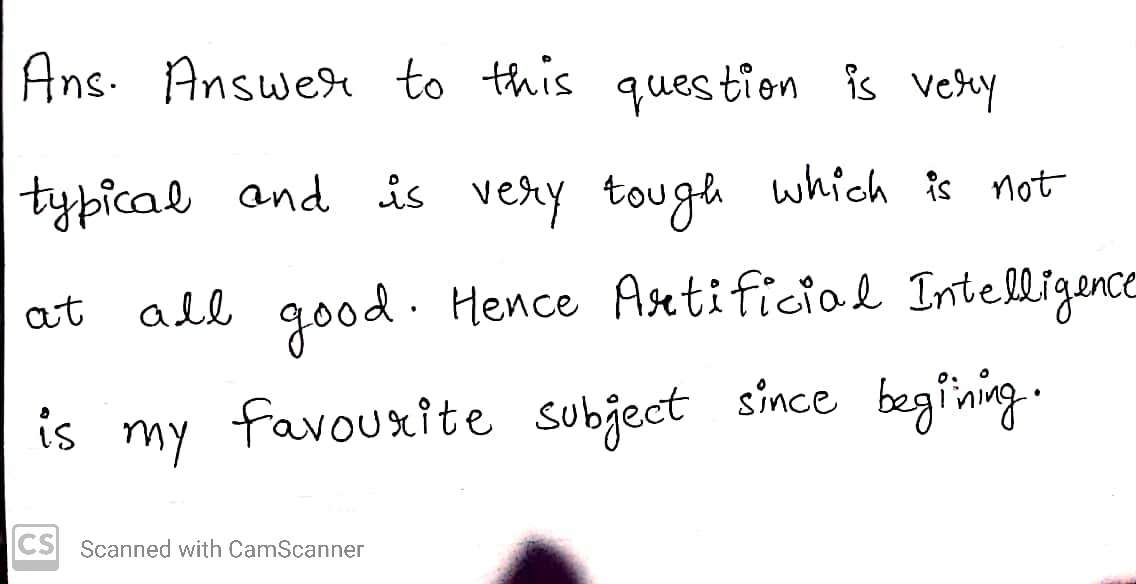 Ans. Answer to this question is very
typical and is very tough which is not
at all good. Hence Artificial Intelligence
is my favourite subject since begining.
CS Scanned with CamScanner